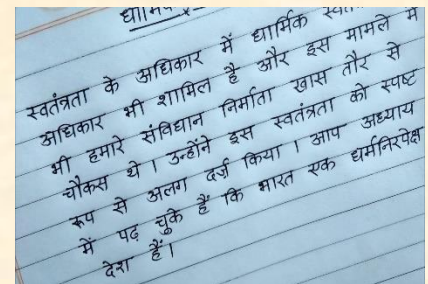 स्वतंत्रता के अधिकार में धार्मिक
अधिकार भी शामिल है और इस मामले में
भी हमारे संविधान निर्माता खास तौर से
चौकस थे। उन्होंने इस स्वतंत्रता को स्पष्ट
रूप से अलग दर्ज़ किया। आप अध्याय
में पढ़ चुके हैं कि भारत एक धर्मनिरपेक्ष
देश हैं।